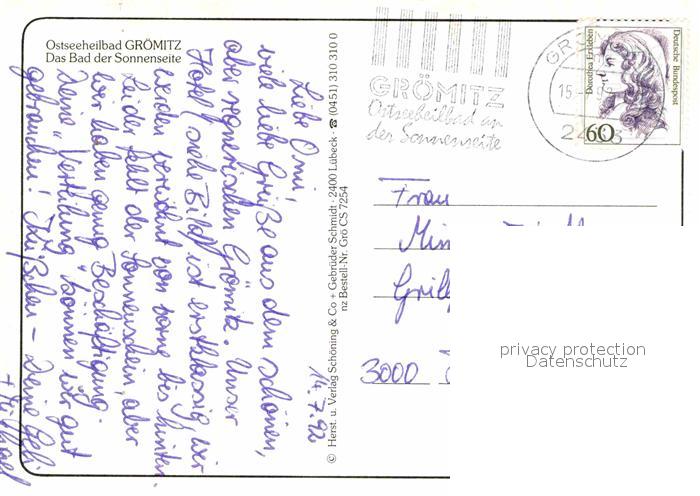 Ostseeheilbad GRÖMITZ
Das Bad der Sonnenseite
14.7.92
Liebe Omi,
viele liebe Grüße aus dem schönen,
aber regnerischen Grömitz. Unser
Hotel (siehe Bild) ist erstklassig, wir
werden verwöhnt von vorne bis hinten.
Leider fehlt der Sonnenschein, aber
wir haben genug Beschäftigung.
Deine "Verteilung" können wir gut
gebrauchen! Küßchen - Deine
+ Michael
© Herst. u. Verlag Schöning & Co + Gebrüder Schmidt · 2400 Lübeck · ☎ (0451) 310 310 0
nz Bestell-Nr. Grö CS 7254
GRÖMITZ
Ostseeheilbad an
der Sonnenseite
15.
Dorothea Erxleben
Deutsche Bundespost
60
Frau
3000
privacy protection
Datenschutz